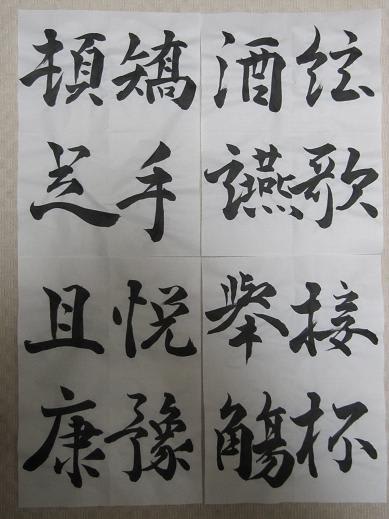 絃歌
酒讌
接杯
舉觴
矯手
頓足
悦豫
且康